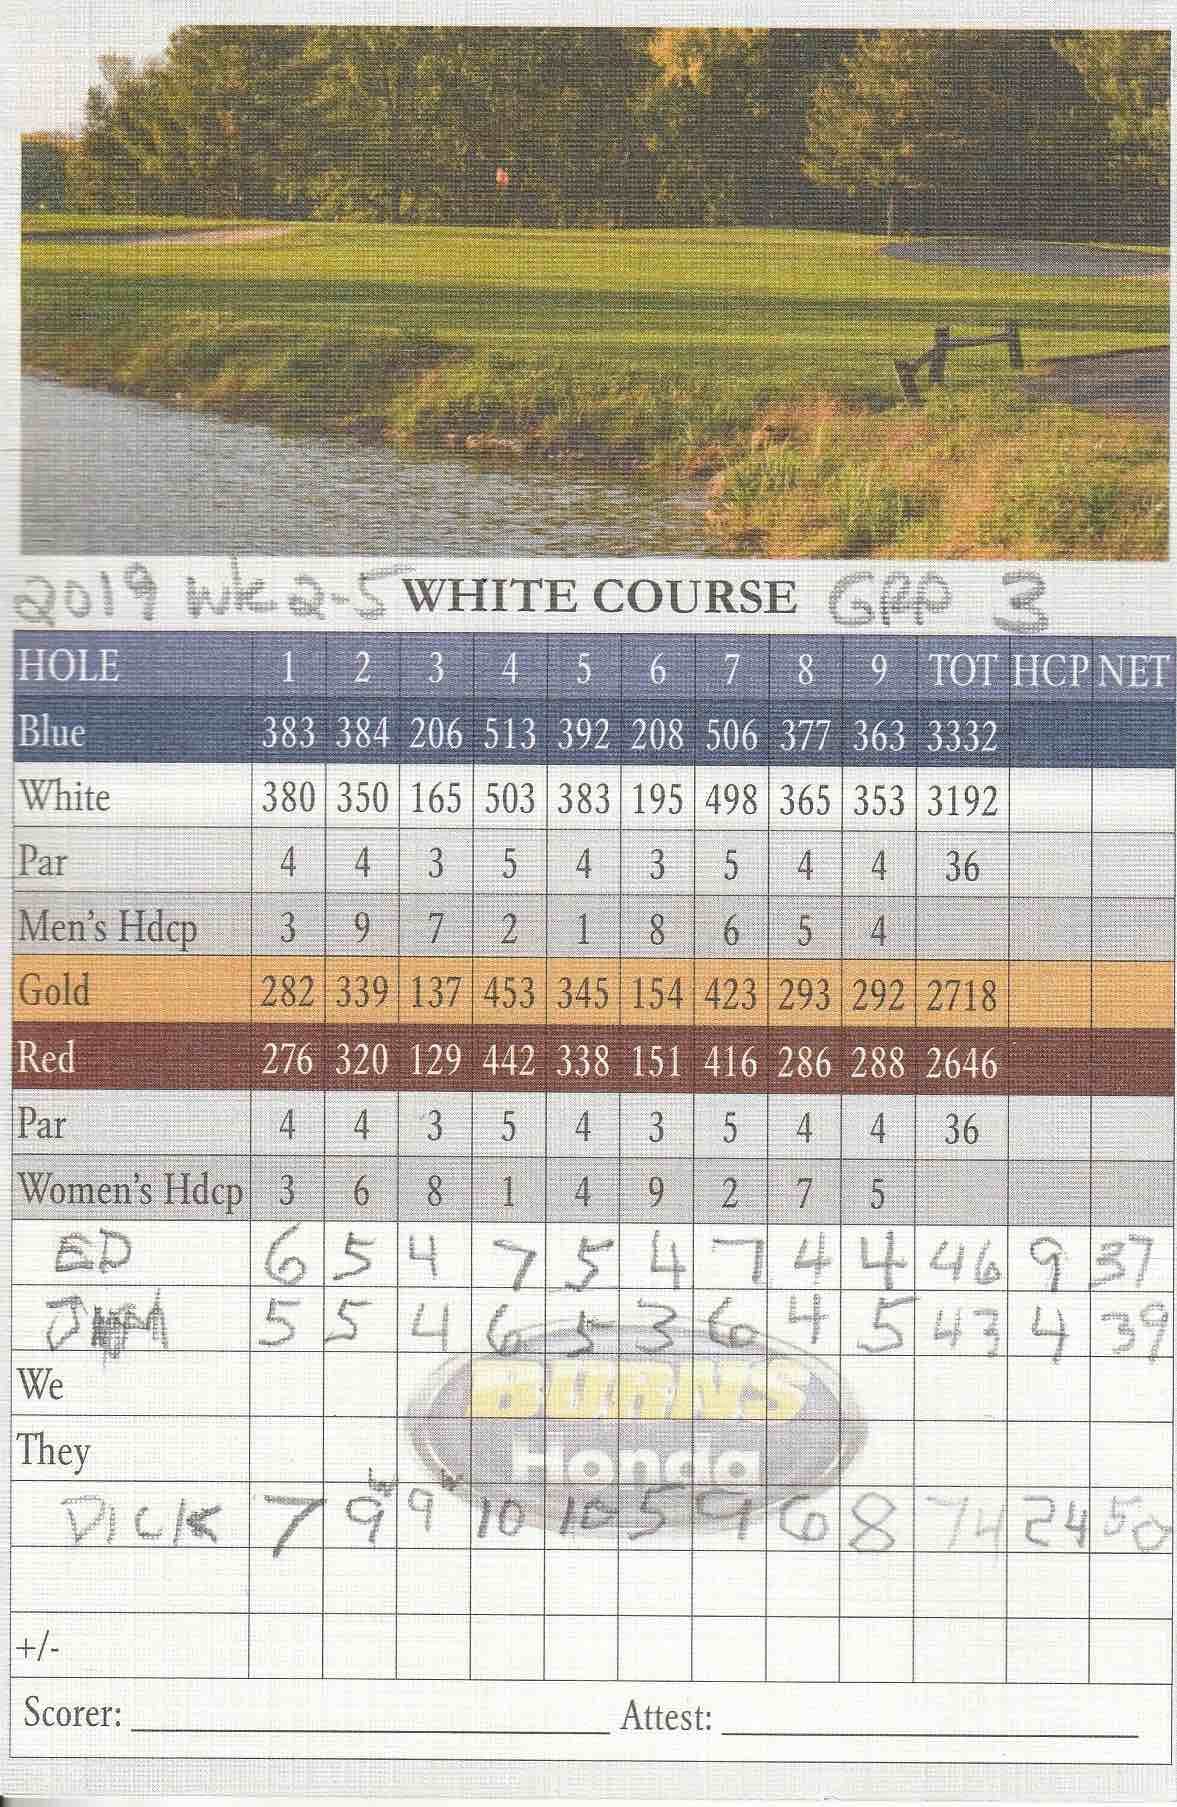 2019 WK 2-5 WHITE COURSE GRP 3
HOLE 1 2 3 4 5 6 7 8 9 TOT HCP NET
Blue 383 384 206 513 392 208 506 377 363 3332
White 380 350 165 503 383 195 498 365 353 3192
Par 4 4 3 5 4 3 5 4 4 36
Men's Hdcp 3 9 7 2 1 8 6 5 4
Gold 282 339 137 453 345 154 423 293 292 2718
Red 276 320 129 442 338 151 416 286 288 2646
Par 4 4 3 5 4 3 5 4 4 36
Women's Hdcp 3 6 8 1 4 9 2 7 5
ED 6 5 4 7 5 4 7 4 4 46 9 37
5 5 4 6 5 3 6 4 5 43 4 39
We
They
BURNS
Honda
W W
DICK 7 9 9 10 10 5 9 6 8 74 24 50
+/-
Scorer: Attest: